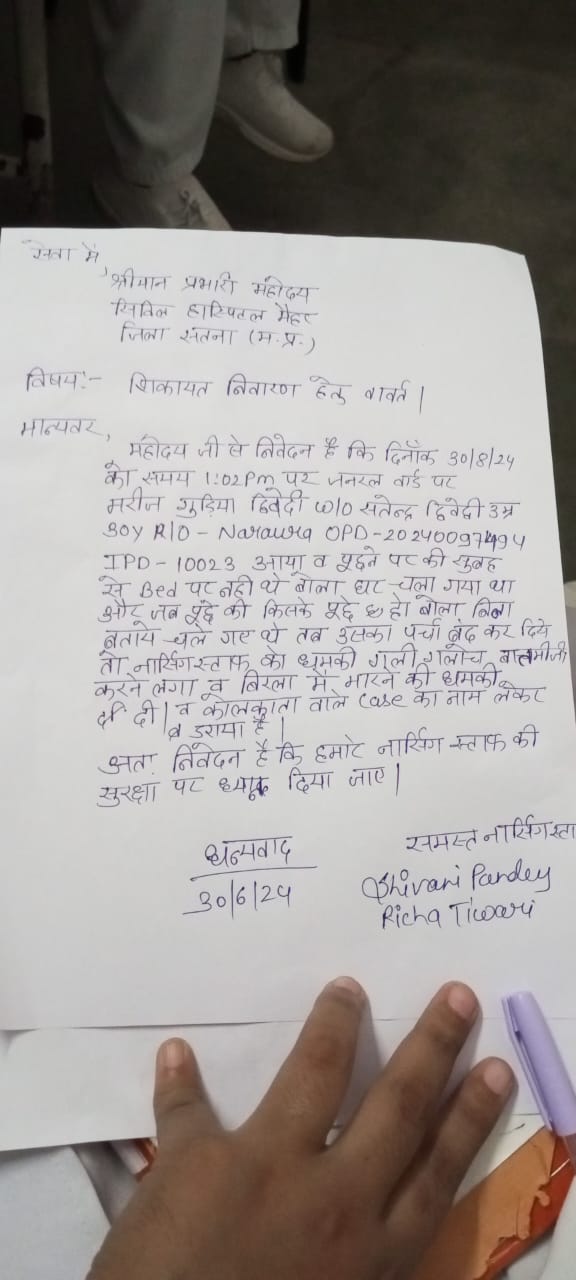 सेवा में,
श्रीमान प्रभारी महोदय
सिविल हास्पिटल मैहर
जिला सतना (म.प्र.)
विषय:- शिकायत निवारण हेतु बावत।
मान्यवर,
महोदय जी से निवेदन है कि दिनाँक 30/8/24
को समय 1:02 Pm पर जनरल वार्ड पर
मरीज गुड़िया द्विवेदी W/O सतेन्द्र द्विवेदी उम्र
30Y R/O - Naraura OPD-20240097494
IPD - 10023 आया व पूछने पर की सुबह
से Bed पर नही थे बोला घर चला गया था
और जब पूछे की किसके पूछे हो बोला बिना
बताये चले गए थे तब उसका पर्चा बंद कर दिये
तो नार्सिंग स्टाफ को धमकी गाली गलोच बातमीजी
करने लगा व बिरला में मारने की धमकी
दी। व कोलकाता वाले case का नाम लेकर
व डराया है।
अतः निवेदन है कि हमारे नार्सिंग स्टाफ की
सुरक्षा पर ध्यान दिया जाए।
धन्यवाद
30/6/24
समस्त नार्सिंग स्टा
Shivani Pandey
Richa Tiwari